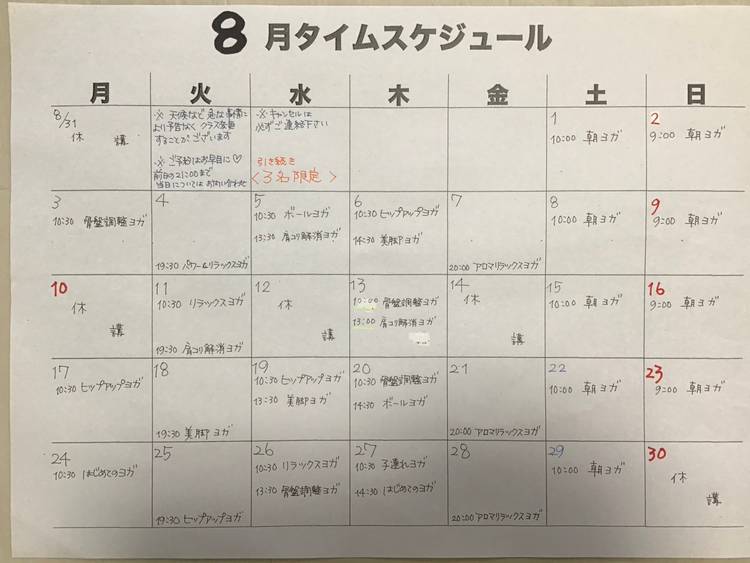 8月タイムスケジュール
月 火 水 木 金 土 日
8/31
休 講
※ 天候など 急な事情に
より予告なく クラス変更
することが ございます
※ ご予約はお早目に♡
前日の21:00まで
当日については お問い合わせ
※ キャンセルは
必ずご連絡下さい
引き続き
<3名限定>
1
10:00 朝ヨガ
2
9:00 朝ヨガ
3
10:30 骨盤調整ヨガ
4
19:30 パワー&リラックスヨガ
5
10:30 ボールヨガ
13:30 肩コリ解消ヨガ
6
10:30 ヒップアップヨガ
14:30 美脚ヨガ
7
20:00 アロマリラックスヨガ
8
10:00 朝ヨガ
9
9:00 朝ヨガ
10
休
講
11
10:30 リラックスヨガ
19:30 肩コリ解消ヨガ
12
休
講
13
10:00 骨盤調整ヨガ
13:00 肩コリ解消ヨガ
14
休
講
15
10:00 朝ヨガ
16
9:00 朝ヨガ
17
10:30 ヒップアップヨガ
18
19:30 美脚ヨガ
19
10:30 ヒップアップヨガ
13:30 美脚ヨガ
20
10:30 骨盤調整ヨガ
14:30 ボールヨガ
21
20:00 アロマリラックスヨガ
22
10:00 朝ヨガ
23
9:00 朝ヨガ
24
10:30 はじめてのヨガ
25
19:30 ヒップアップヨガ
26
10:30 リラックスヨガ
13:30 骨盤調整ヨガ
27
10:30 子連れヨガ
14:30 はじめてのヨガ
28
20:00 アロマリラックスヨガ
29
10:00 朝ヨガ
30
休
講